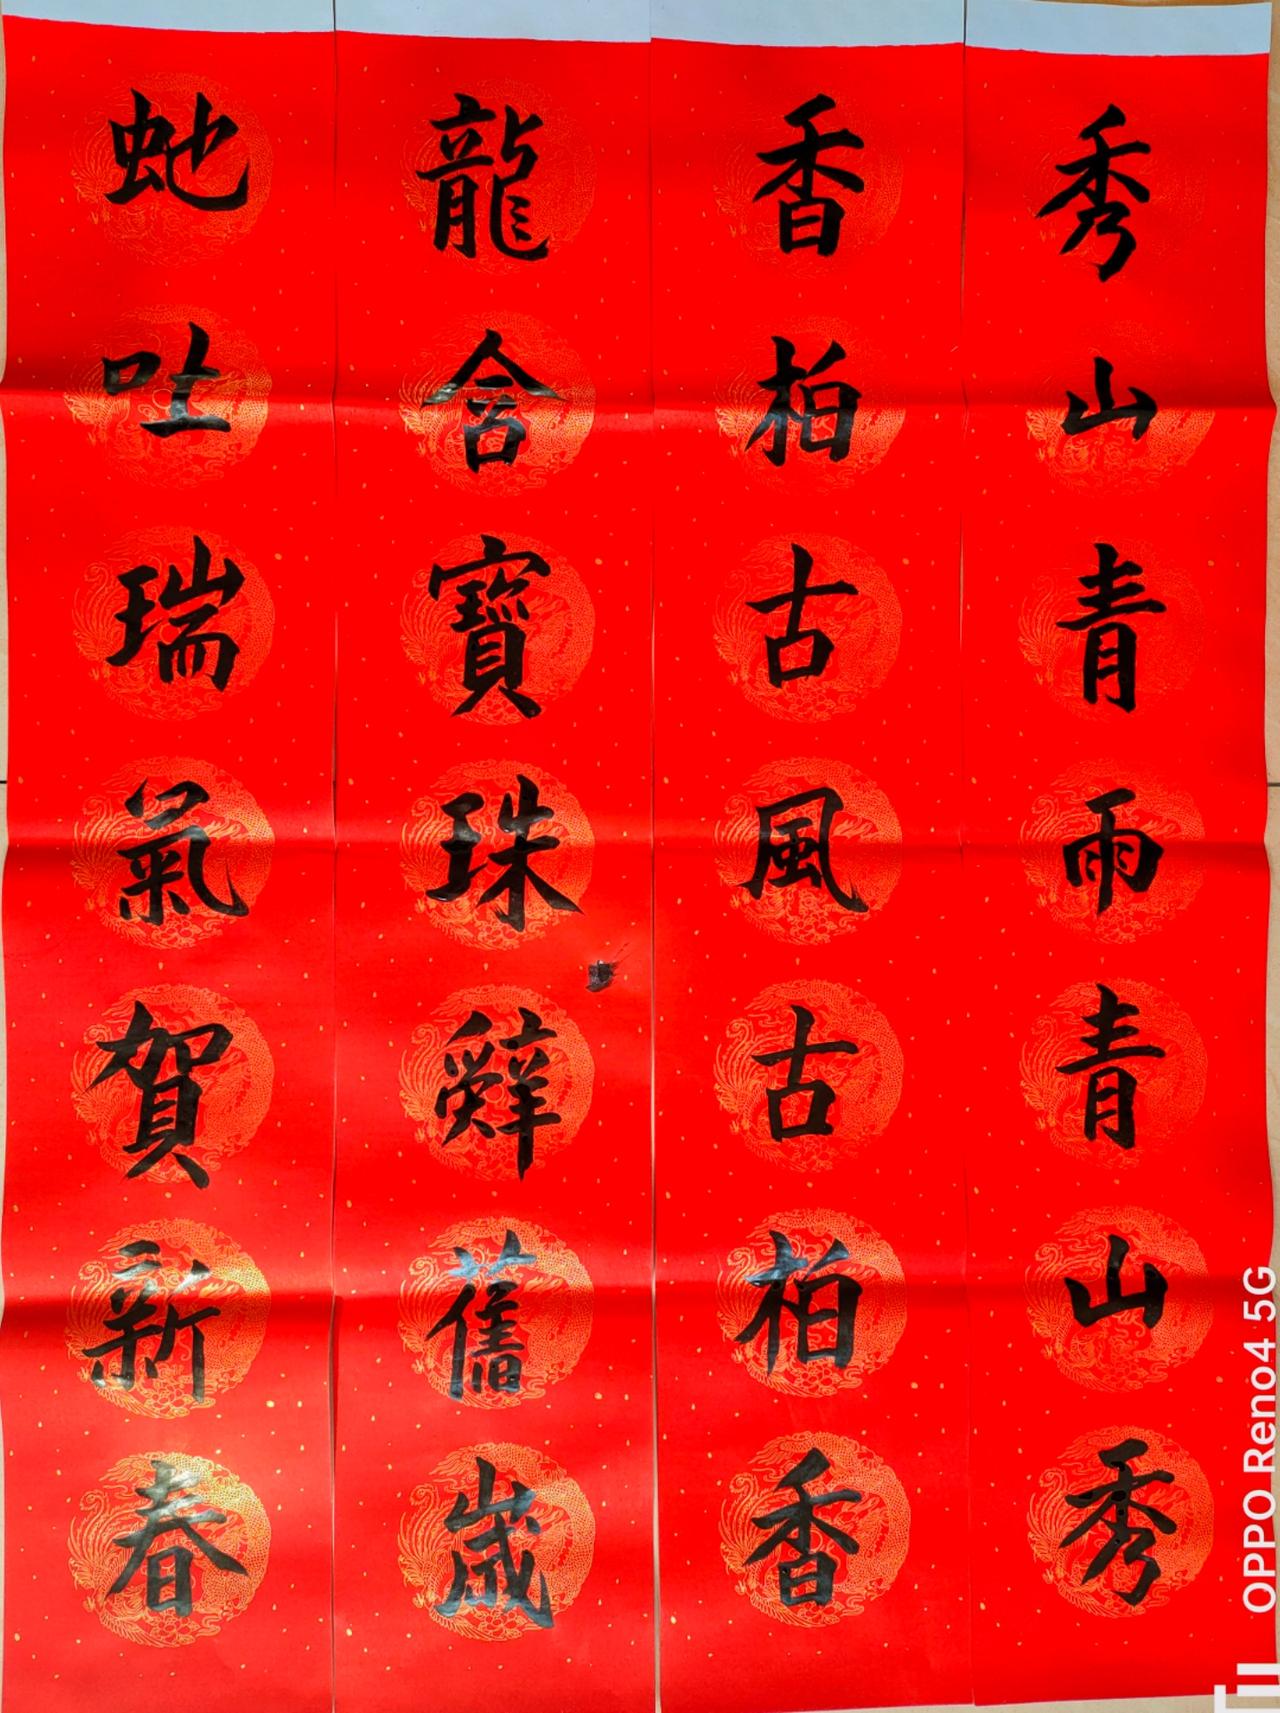 秀山青雨青山秀
香柏古風古柏香
龍含寶珠辭舊歲
蛇吐瑞氣賀新春
OPPO Reno4 5G